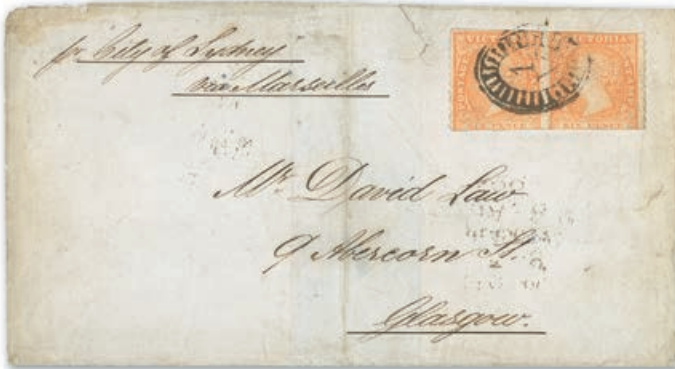 pr "City of Sydney"
via Marseilles
VICTORIA
Mr. David Law
9 Abercorn St.
Glasgow.